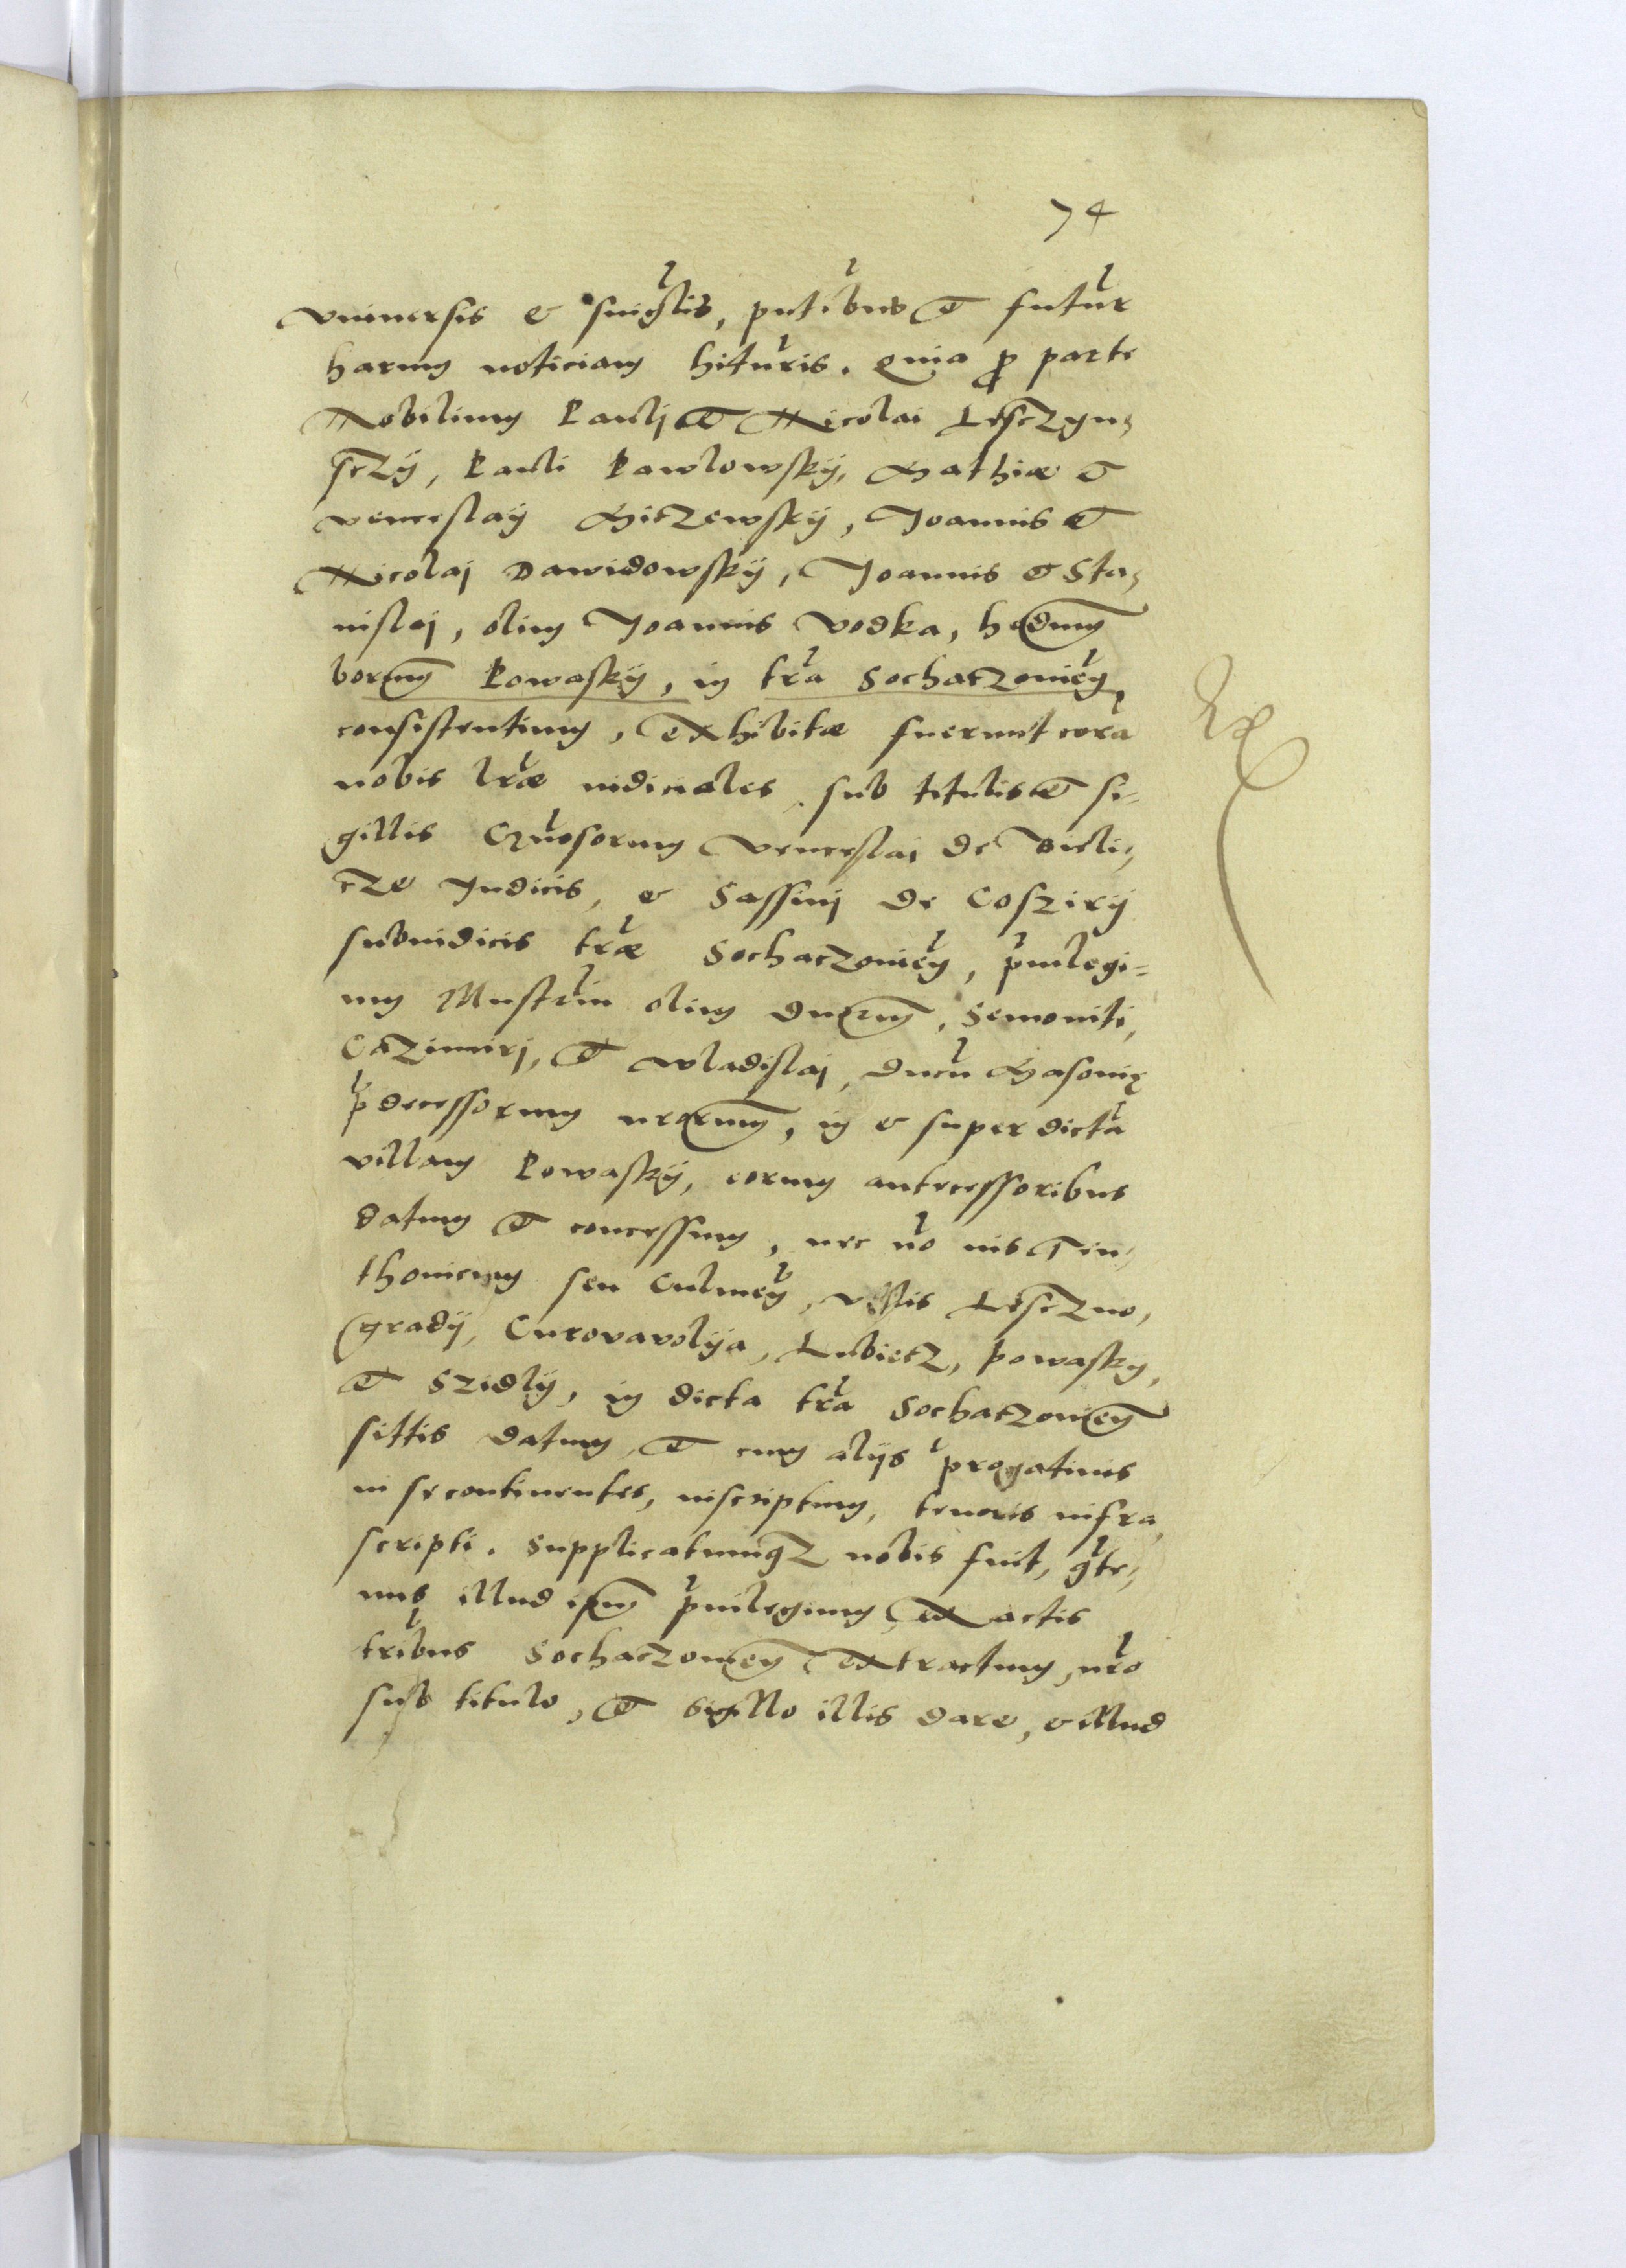 74
Vniuersis & singlis, pntibus et futur
harum noticiam hituris. Quia p parte
Nobilium Pauli et Nicolai Lesczyn,
sczÿ, Pauli Pawlowskÿ, Mathiæ et
Venceslaÿ Miczewskÿ, Joannis et
Nicolaj Dawidowskÿ, Joannis et Sta,
nislaj, olim Joannis Vodka, hædum
borum Powaskÿ, in tra Sochaczouien,
consistentium, exhibitæ fuerunt cora
nobis lræ iudiciales sub titulis et si-
gillis Gnosorum Venceslai de Bieli,
cze Judicis, & Sassini de Cosziry
subiudicis træ Sochaczouien, puilegi-
um Illustrium olim ducum, Semouiti,
Cazimirj, et Wladislaj, ducu Masouię
pdecessorum nrorum, in & super dicta
villam Powaskÿ, eorum antecessoribus
datum et concessum, nec no ius Teu,
thonicum seu Culmen, villis Lesczno,
gradÿ, Curovavolÿa, Lubiecz, Powasky,
et Szidlÿ, in dicta tra Sochaczouien
sittis datum, et cum alÿs progatiuis
in se continentes, inscriptum, tenoris infra
scripti. Supplicatumqz nobis fuit, qte,
nus illud ipsum puilegium, ex actis
tribus Sochaczouien extractum, nro
sub titulo, et sigillo illis dare, & illud